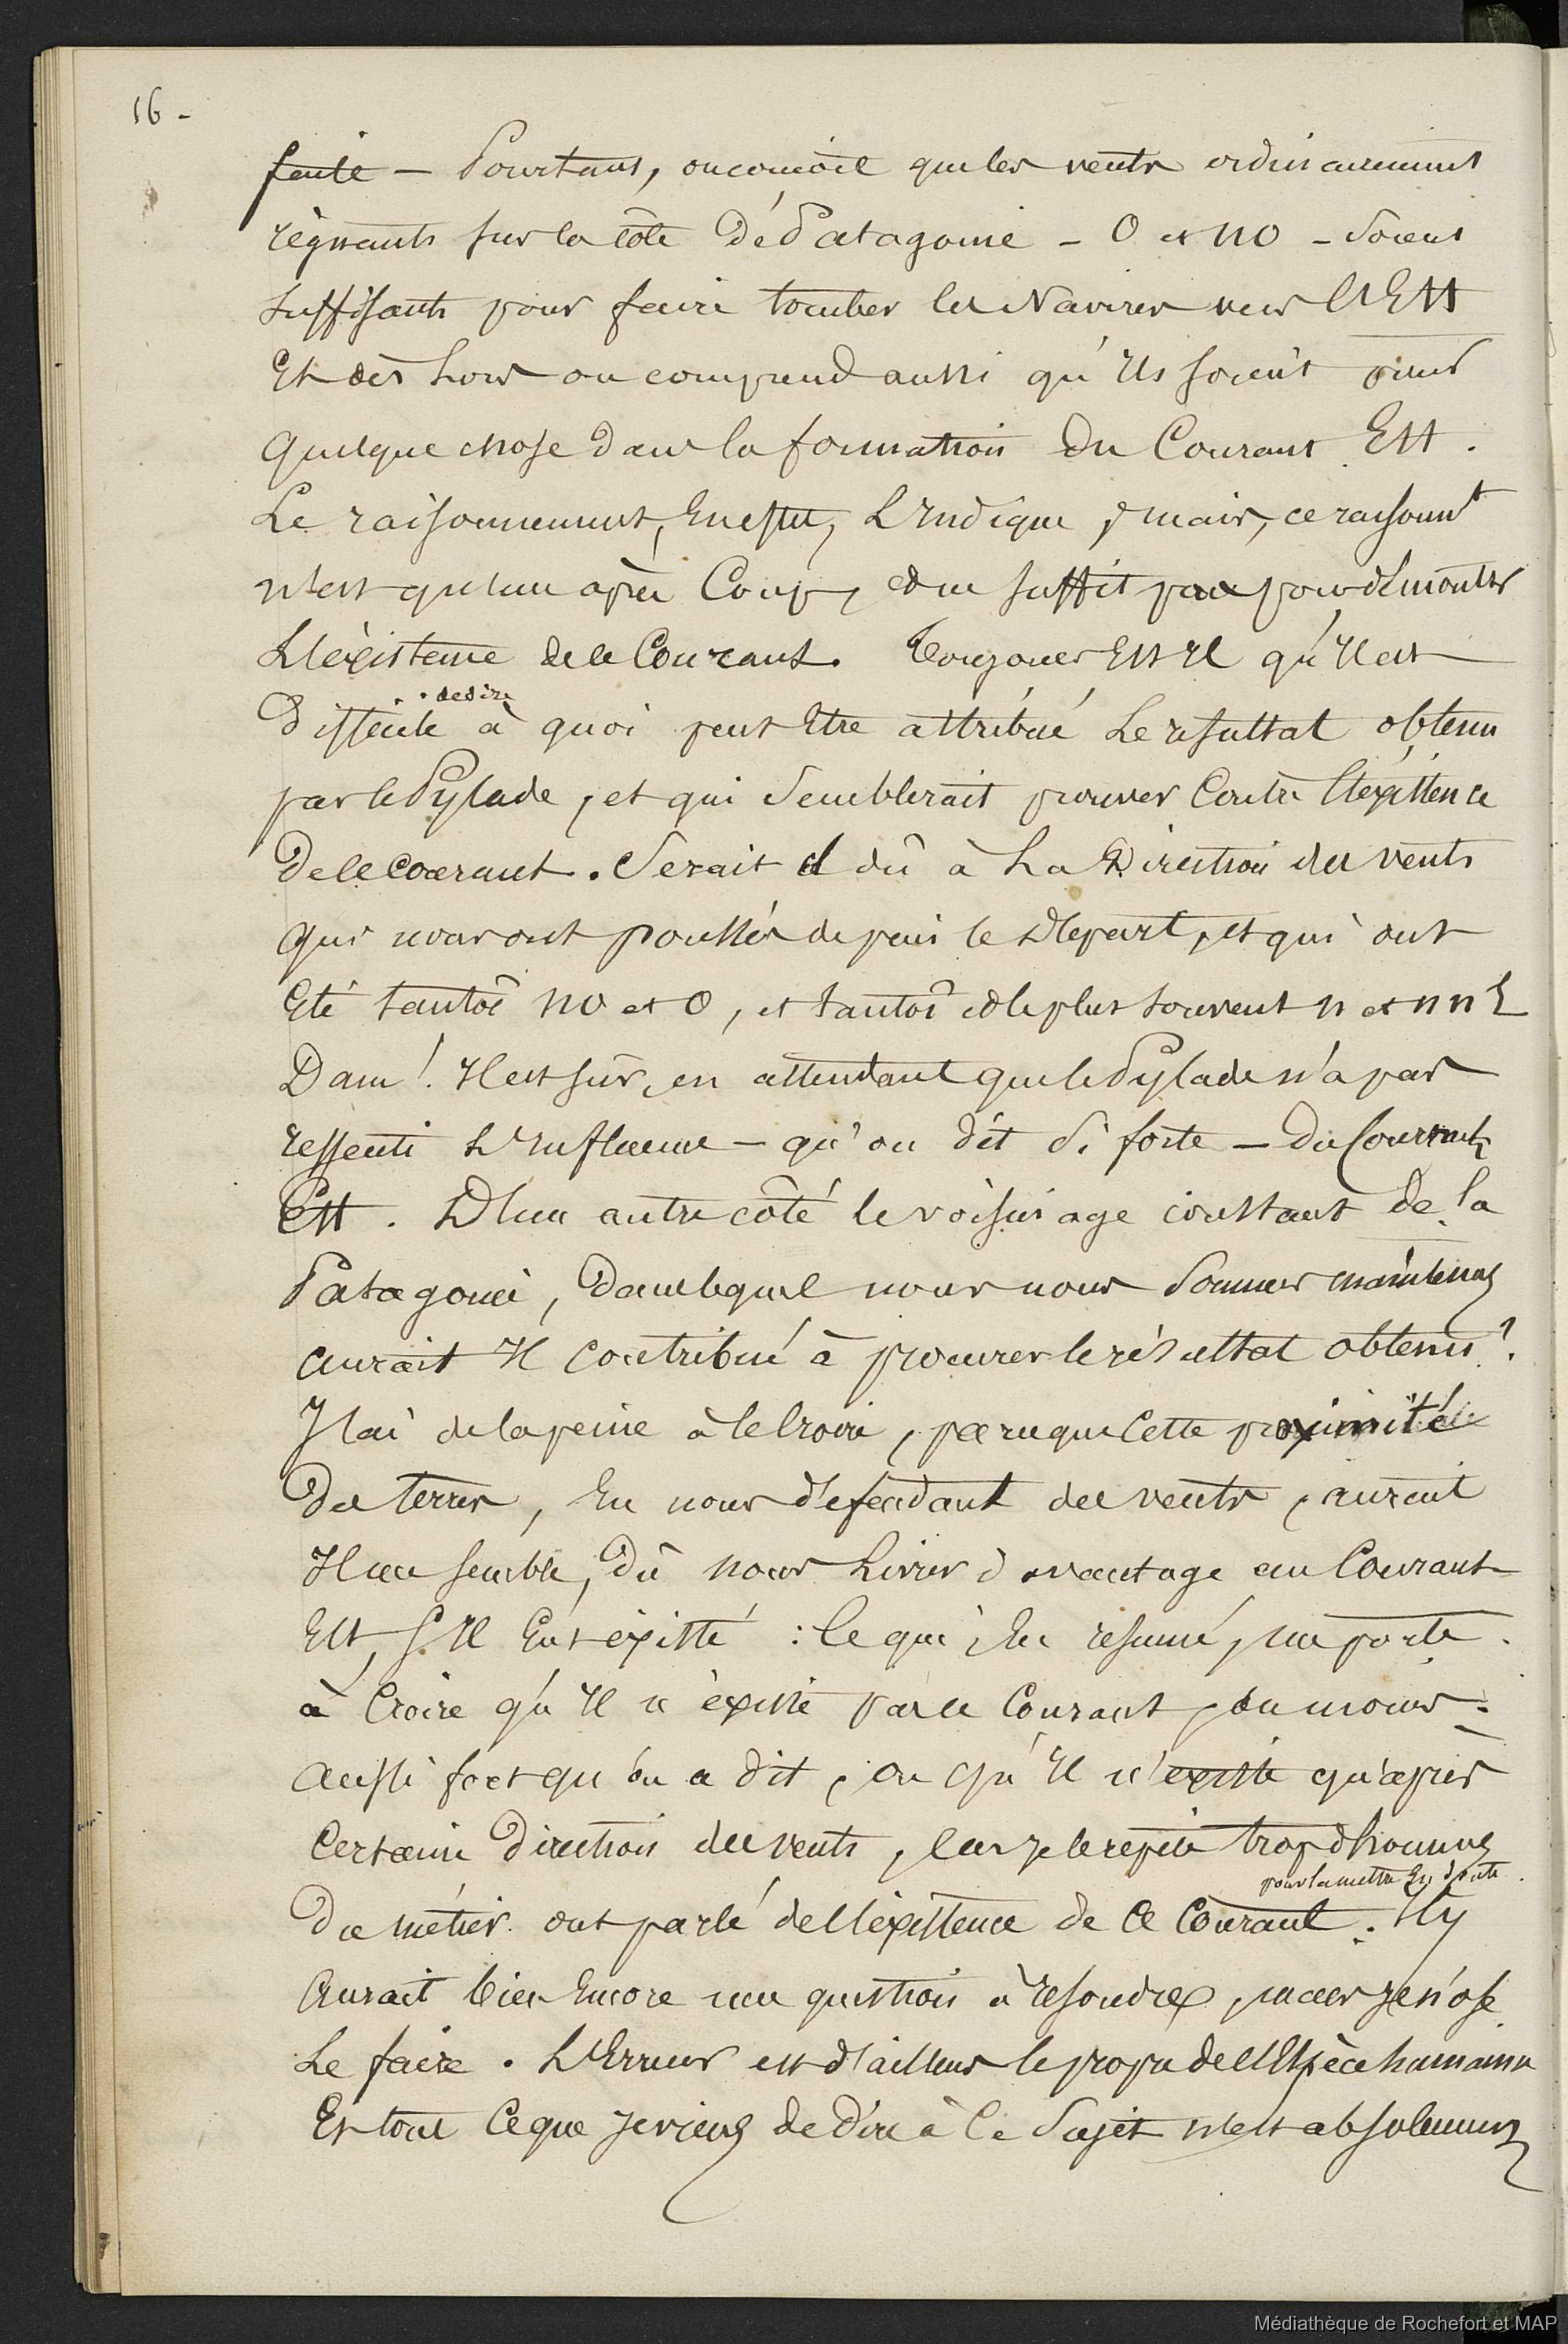 16 -
faite - Pourtant, on conçoit que les vents ordinairement
règnants sur la côte de Patagonie - O et NO - soient
suffisants pour faire tomber les Navires vers l'Est
Et dès Lors on comprend aussi qu'Ils soient pour
quelque chose dans la formation du Courant Est.
Le raisonnement, En effet, L'Indique, mais, ce raisonnt
n'est qu'un après Coup, et ne suffit pas pour démontrer
L'éxistence de ce Courant. Toujours Est Il qu'Il est
difficile de dire à quoi peut Etre attribué Le résultat obtenu
par le Pylade, et qui semblerait prouver Contre l'éxistence
de ce courant. Serait il dû à La Direction des vents
qui nous ont poussés depuis le Départ, et qui ont
Eté tantôt NO et O, et tantôt et le plus souvent N et NNE
Dam! Il est sûr, en attendant que le Pylade n'a pas
ressenti L'Influence - qu'on dit si forte - du Courant
Est. D'un autre côté le voisinage constant de la
Patagonie, dans lequel nous nous sommes maintenus
aurait Il contribué à procurer le résultat obtenu?
J'ai de la peine à le Croire, parceque Cette proximité
des terres, En nous défendant des vents, aurait
Il me semble, dû nous Livrer davantage au Courant
Est, S'Il Eut éxisté : Ce qui, En résumé, me porte
à Croire qu'Il n'éxiste pas ce Courant, ou moins
aussi fort qu'on a dit, ou qu'Il n'existe qu'après
Certaine direction des vents, Car je le répète trop d'hommes
du métier ont parlé de l'éxistence de ce Courant pour la mettre En doute. Il y
Aurait bien Encore une question à résoudre, mais je n'ose
Le faire. L'Erreur est d'ailleurs le propre de l'Espèce humaine
Et tout Ce que je viens de dire à Ce Sujet n'est absolument
Médiathèque de Rochefort et MAP